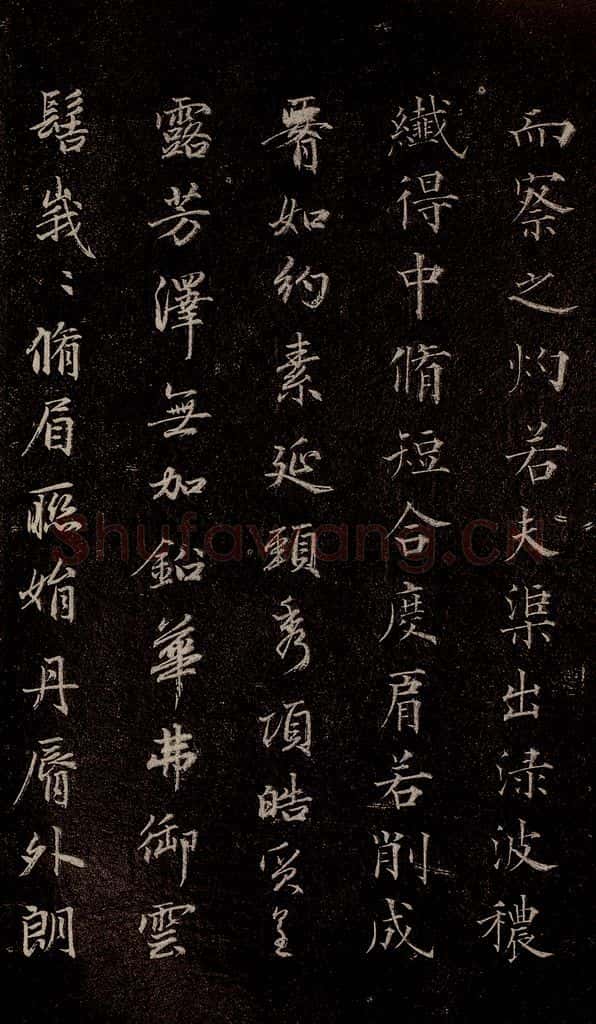 而察之灼若夫渠出渌波穠
纖得中脩短合度肩若削成
䙴如約素延頸秀項皓質呈
露芳澤無加鉛華弗御雲
髻峩〻脩眉聯娟丹脣外朗
Shufawang.cn